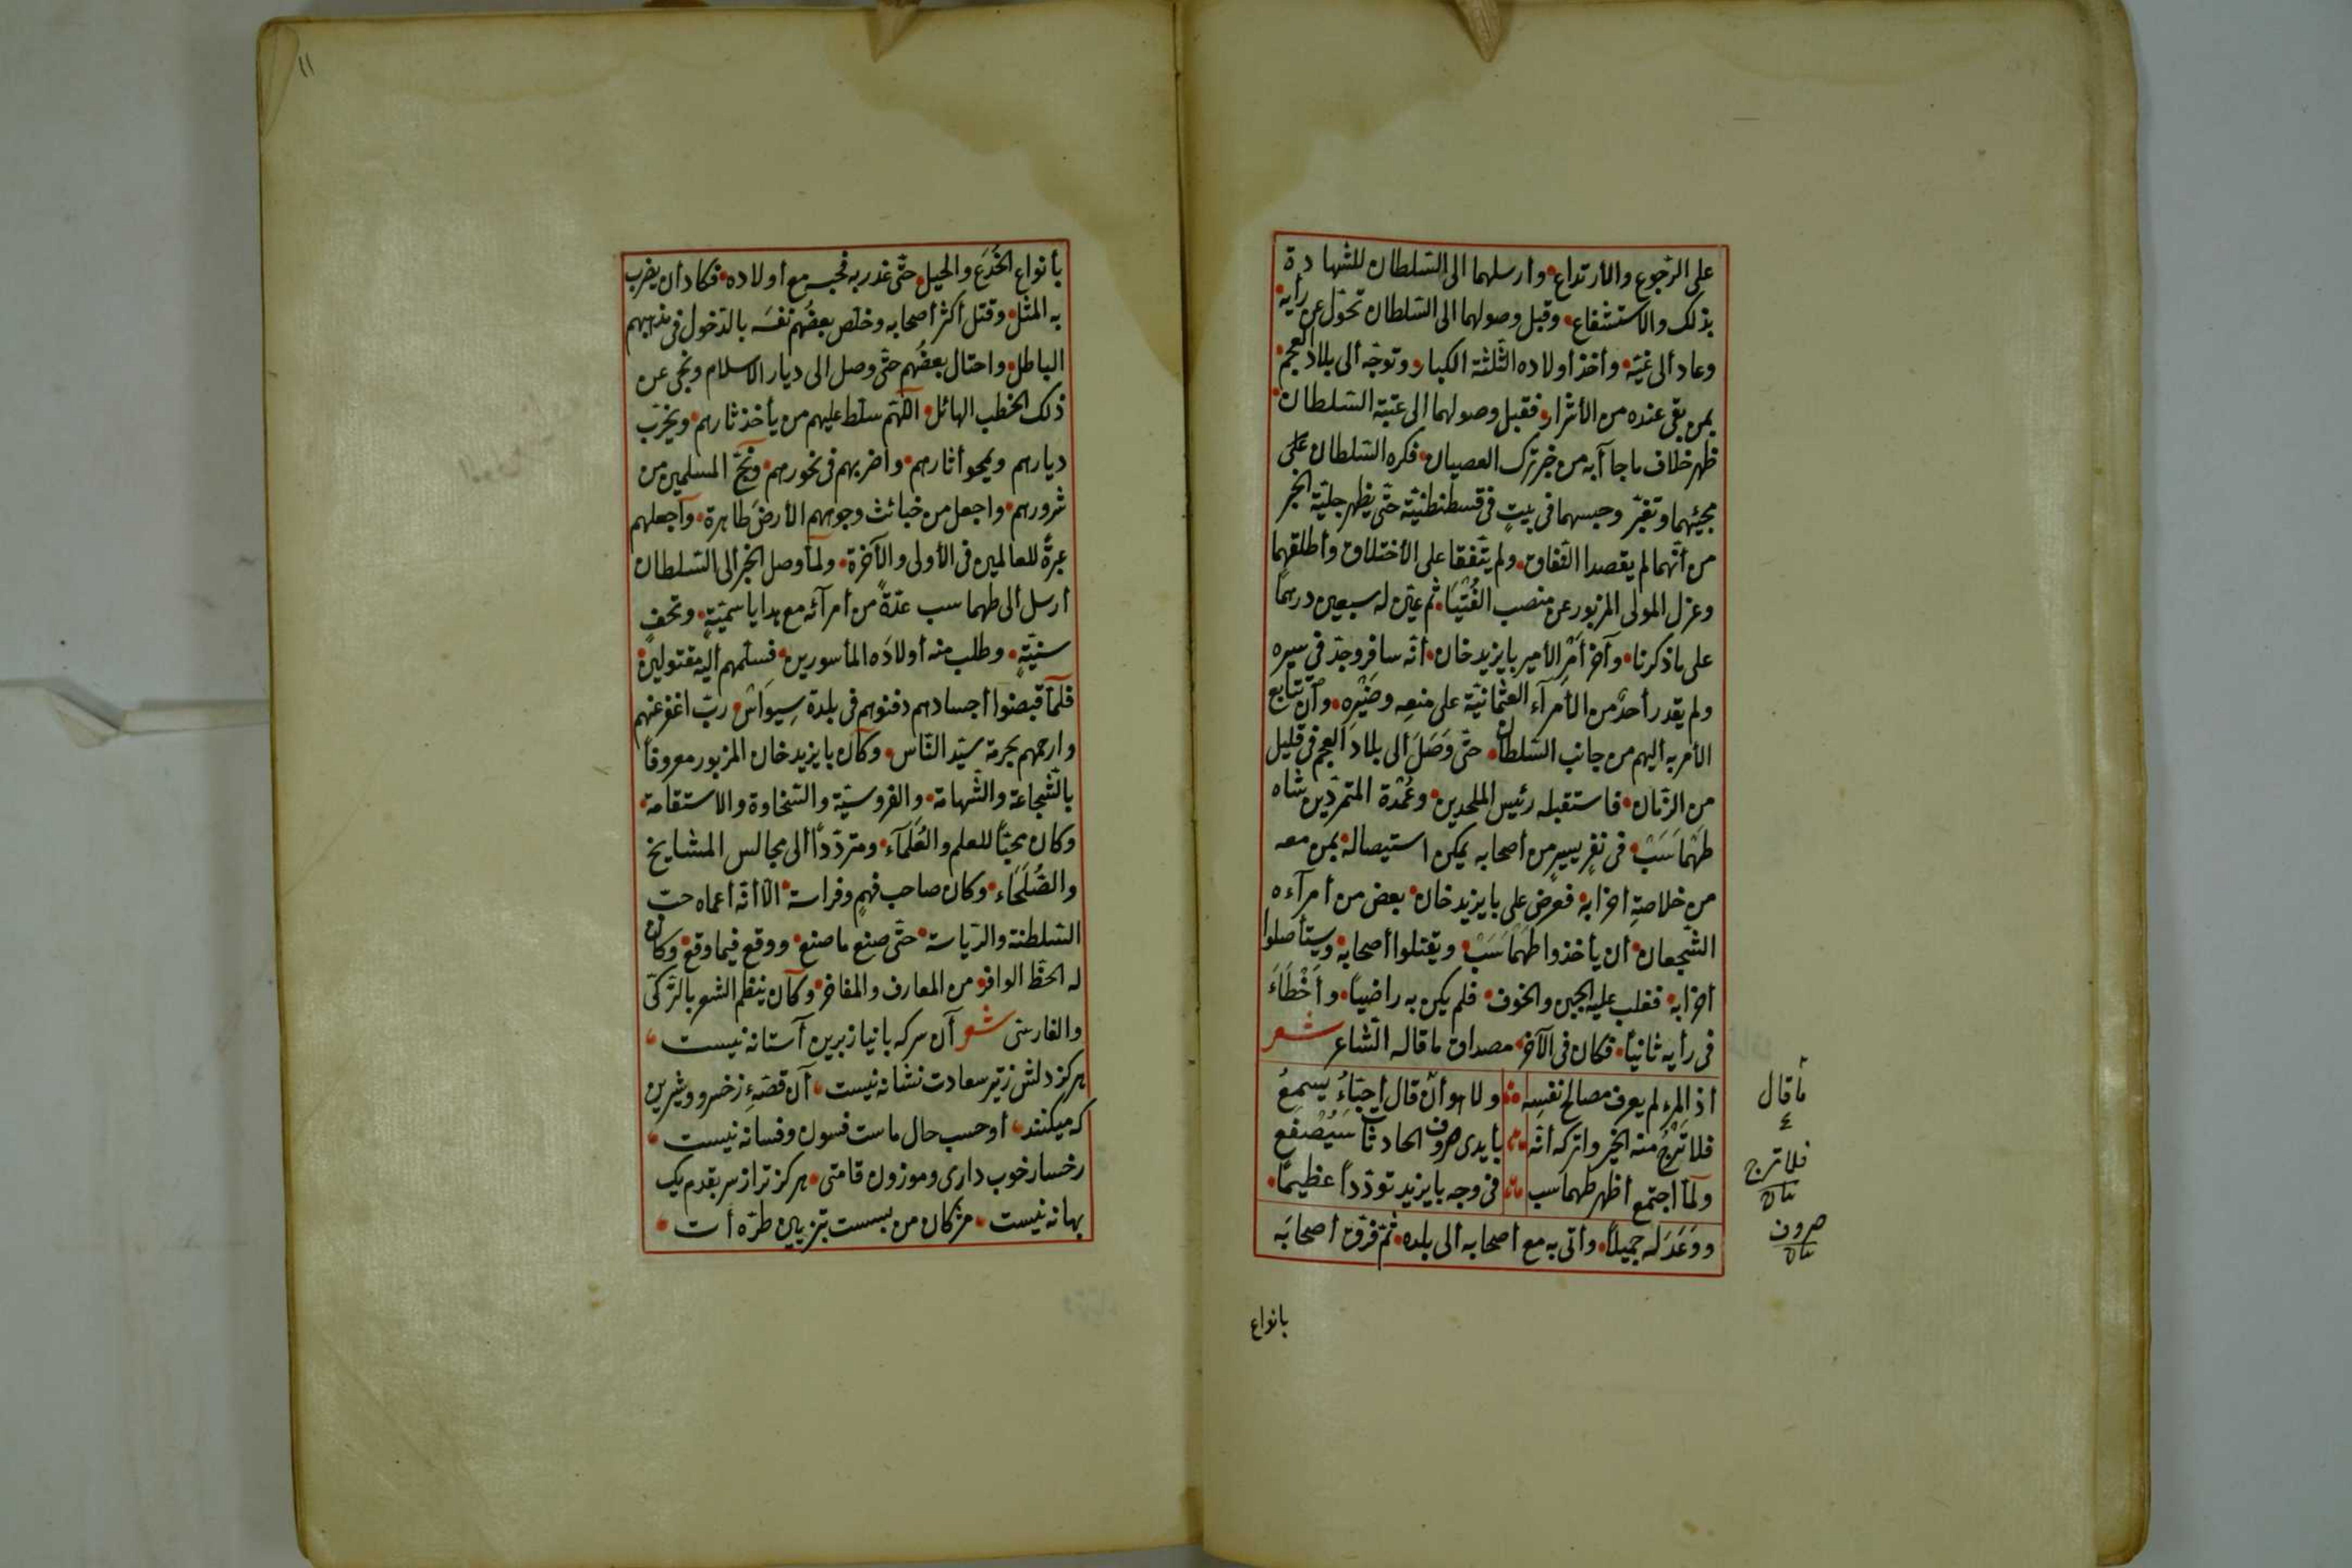 على الرّجوع والأرتداع • وأرسلهما الى السّلطان للشّهادة
بذلك والاستشفاع • وقبل وصولهما الى السّلطان تحوّل عن رأيه •
وعاد ألى غيّه • وأخذ أولاده الثّلثة الكبار • وتوجّه ألى بلاد العجم •
بمن بقى عنده من الأشرار • فقبل وصولهما الى عتبة السّلطان •
ظهر خلاف ما جاآ به من خبر ترك العصيان • فكره السّلطان على
مجيئهما وتغيّر وحبسهما فى بيتٍ فى قسطنطنيّة حتّى يظهر جليّة الخبر
من أنّهما لم يقصدا النّفاق • ولم يتّفقا على الأختلاق وأطلقهما
وعزل المولى المزبور عن منصب الفُتْيَا • ثم عيّن له سبعين درهمًا
على ما ذكرنا • وآخر أَمْرِ الأمير بايزيد خان • أنّه سافر وجدّ فى سيره
ولم يقدر أحدٌ من الأمرآء العثمانيّة على منعه وضَيْرِه • وأن تتابع
الأمر به أليهم من جانب السّلطان • حتّى وَصَلَ ألى بلاد العجم فى قليل
من الزّمان • فاستقبله رئيس الملحدين • وعُمْدة المتمرّدين شاه
طَهْمَاسَبْ • فى نفرٍ يسيرٍ من أصحابه يمكن استيصاله • بمن معه
من خلاصةِ احزابه • فعرض على بايزيد خان • بعض من أمرآءه
الشّجعان • أن يأخذوا طَهْمَاسَبْ • ويقتلوا أصحابه • ويستأصلوا
احزابه • فغلب عليه الجبن والخوف • فلم يكن به راضياً • وأَخْطَاءَ
فى رأيه ثانياً • فكان فى الآخر • مصداق ما قاله الشّاعر شعر
أذ المرء لم يعرف مصالح نفسِه ولا هو أن قال أحِبّاءُ يسمعُ
فلا تَرْجُ منه الخير واتركه أنّه بأيدى صروف الحادثات سَيُصْفَع
ولمّا أجتمع أظهر طهماسب فى وجه بايزيد تودّداً عظيماً •
ووَعَدَ له جميلاً • وأتى به مع أصحابه ألى بلده • ثمّ فرّق أصحابَه
ما قال
٤
فلا ترج
صروف
بانواع
١١
بأنواع الخُدَع والحيل • حتّى غدر به فحبسه مع أولاده • فكاد أن يضرب
به المثل • وقتل أكثر أصحابه وخلّص بعضُهم نفسَه بالدّخول فى مذهبهم
الباطل • واحتال بعضُهم حتّى وصل الى ديار الاسلام ونجى عن
ذلك الخطب الهائل • اللّهمّ سلّط عليهم من يأخذ ثارهم • ويخرّب
ديارهم ويمحو أثارهم • واضربهم فى نحورهم • ونجّ المسلمين من
شرورهم • واجعل من خبائث وجوههم الأرضَ طاهرة • وأجعلهم
عبرةً للعالمين فى الأولى والآخرة • ولمّا وصل الخبر ألى السّلطان
أرسل ألى طهماسب عدّةً من أمرآئه مع هدايا سميّةٍ • وتحفٍ
سنيّةٍ • وطلب منه أولادَه المأسورين • فسلّمهم أليه مقتولين •
فلمّا قبضوا أجسادهم دفنوهم فى بلدة سِيوَاسْ • ربّ اغفر عنهم
وارحمهم بحرمة سيّد النّاس • وكان بايزيد خان المزبور معروفاً
بالشّجاعة والشّهامة • والفروسيّة والسّخاوة والاستقامة •
وكان محبّاً للعلم والعُلَمَآء • ومتردّداً ألى مجالس المشايخ
والصُّلَحَاء • وكان صاحب فهمٍ وفراسة • الّا أنّه أعماه حبّ
السّلطنة والرّياسة • حتّى صنع ما صنع • ووقع فيما وقع • وكان
له الحظّ الوافر • من المعارف والمفاخر • وكان ينظم الشعر بالتّركىّ
والفارسّى شعر آن سركه بانياز برين آستانه نيست
هركز دلش زتير سعادت نشانه نيست • آن قصّهءِ زخسرو وشرين
كه ميكنند • أو حسب حال ماست فسون وفسانه نيست •
رخسار خوب دارى وموزون قامتى • هركز ترا زسر بقدم يك
بهانه نيست • مژكان من ببست طرّه أت •